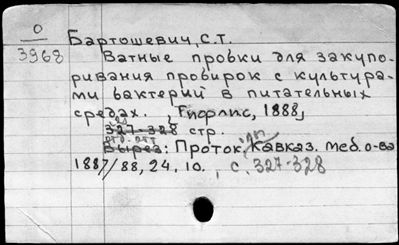 0
3968
Бартошевич, С.Т.
Ватные пробки для закупо-
ривания пробирок с культура-
ми бактерий в питательных
средах. , Тифлис, 1888,
327-328 стр.
Вырез: Проток. Кавказ. мед. о-ва
1887/88, 24, 10. , с. 327-328